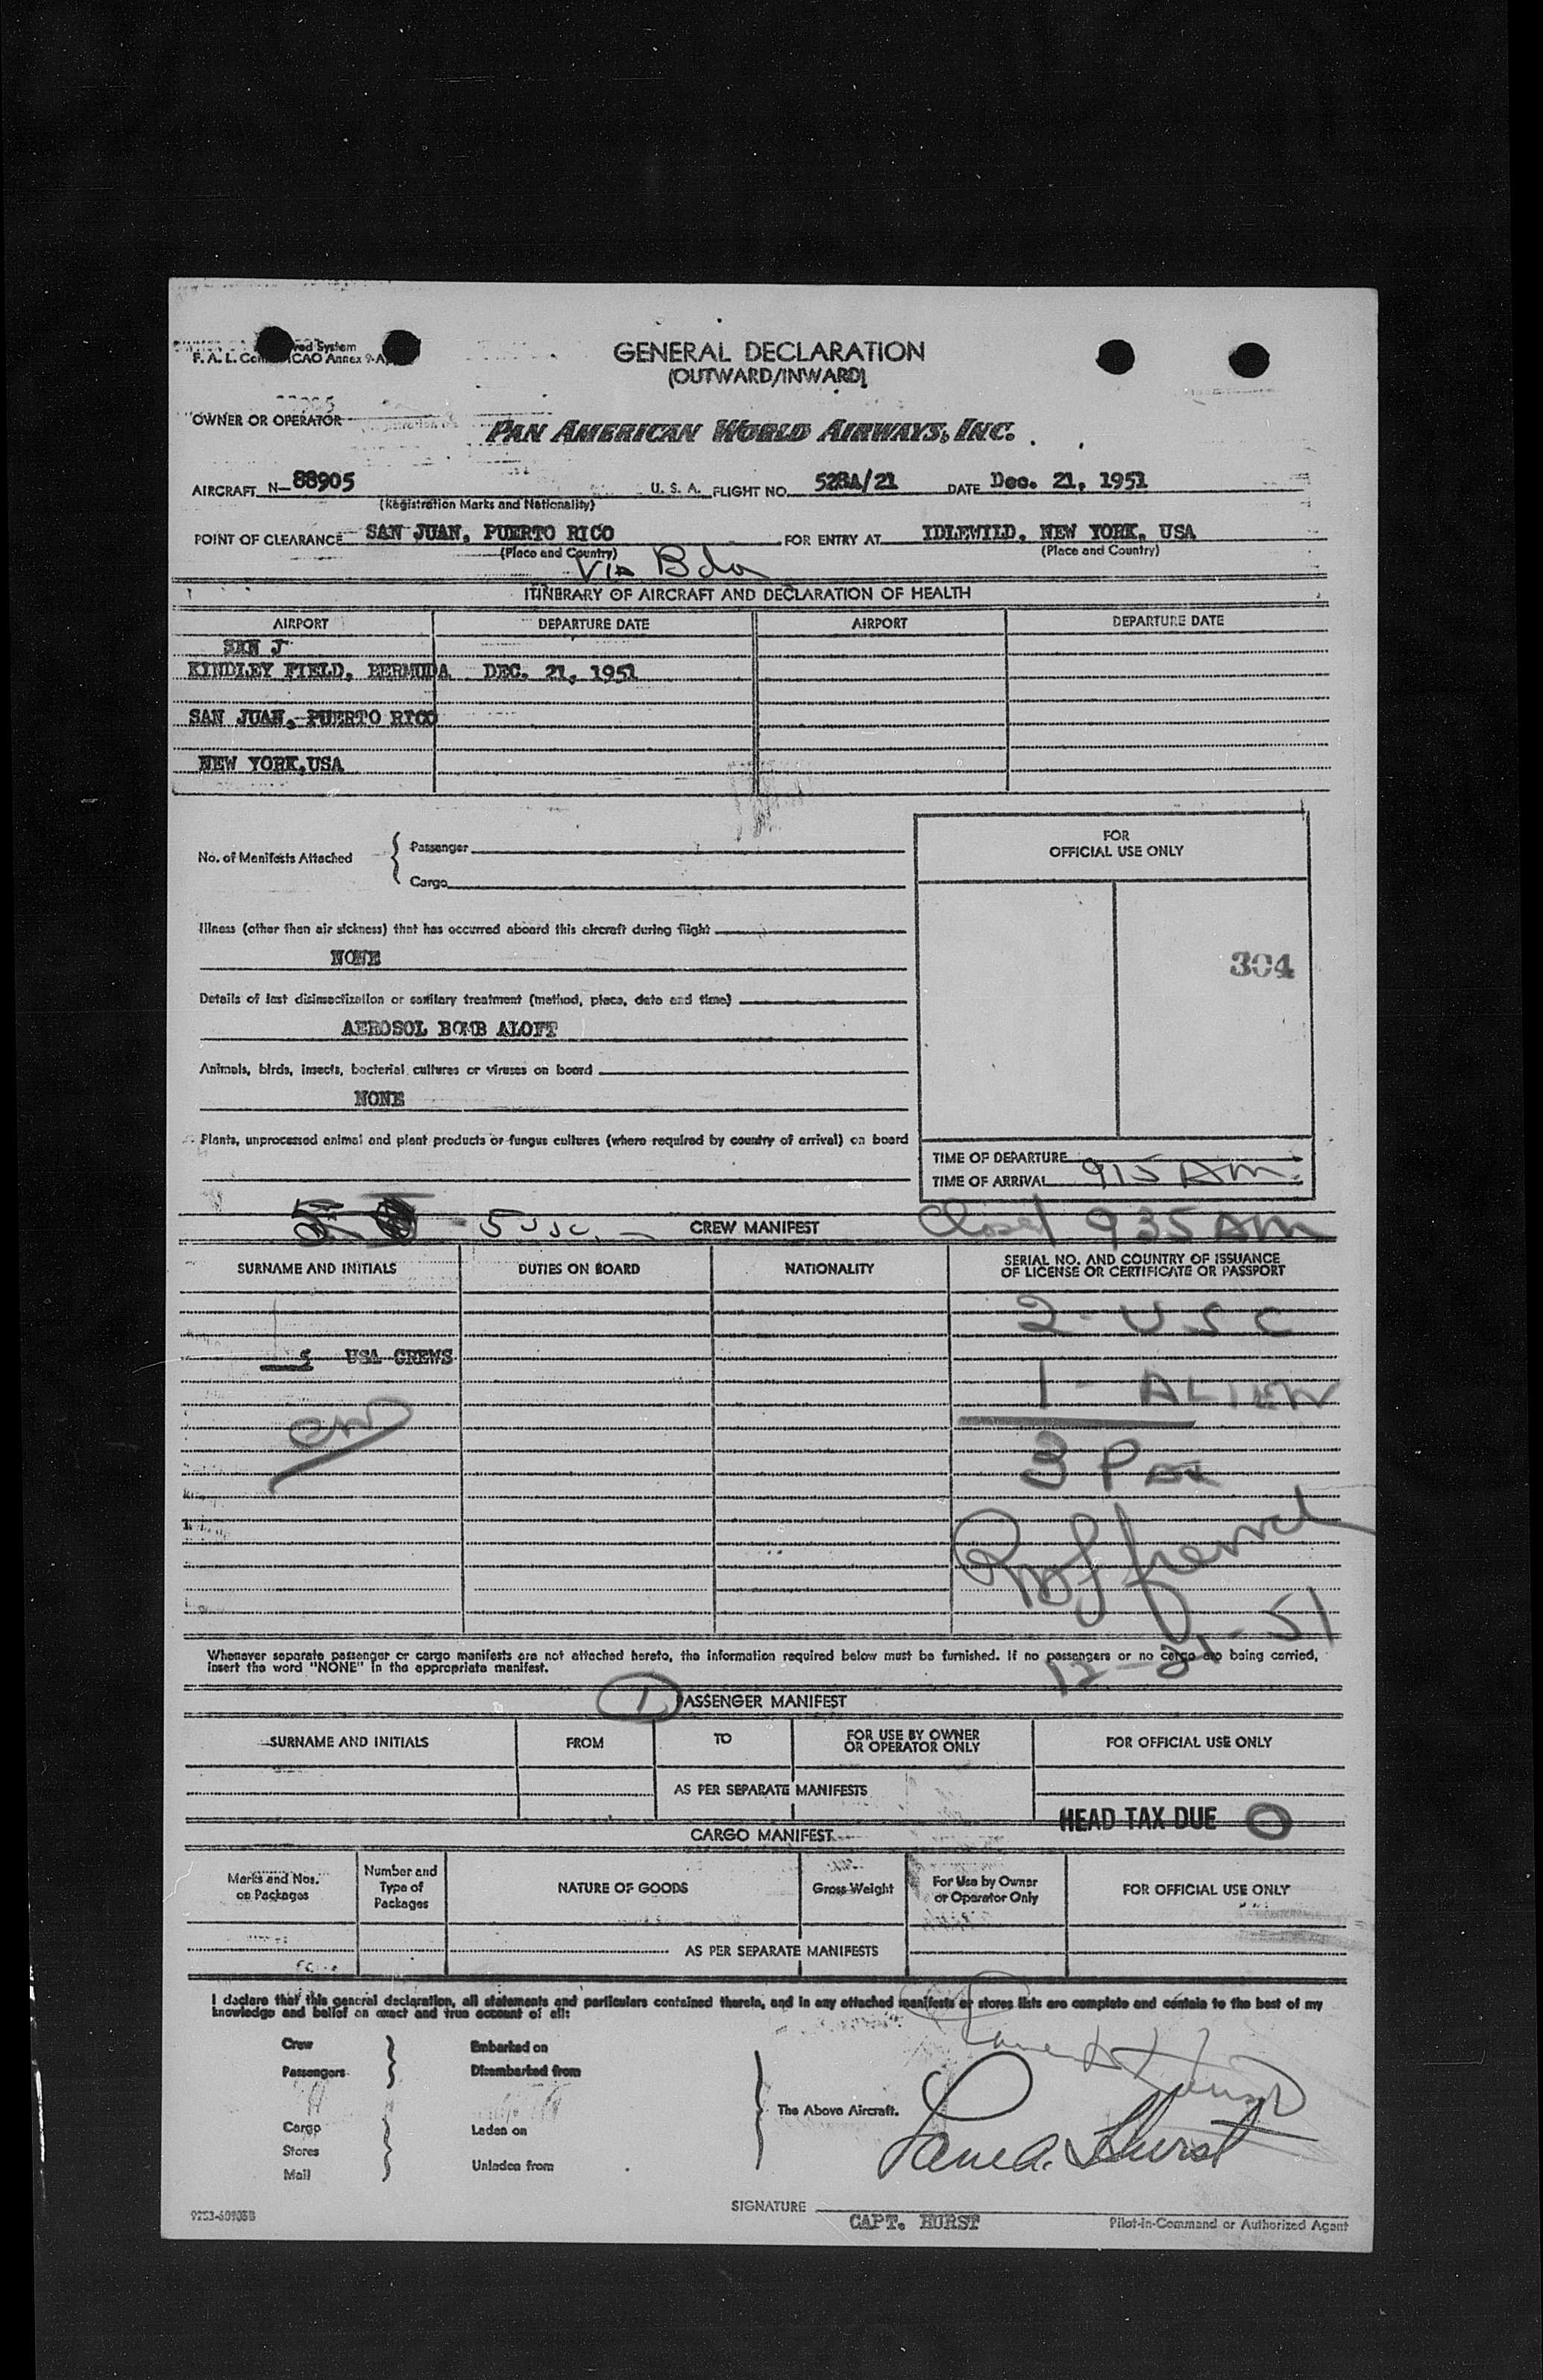 GENERAL DECLARATION
(OUTWARD/INWARD)
OWNER OR OPERATOR
PAN AMERICAN WORLD AIRWAYS, INC.
AIRCRAFT N-88905 U. S. A. FLIGHT NO. 528A/21 DATE Dec. 21, 1951
(Registration Marks and Nationality)
POINT OF CLEARANCE SAN JUAN, PUERTO RICO FOR ENTRY AT IDLEWILD, NEW YORK, USA
(Place and Country) (Place and Country)
Via Bda
ITINERARY OF AIRCRAFT AND DECLARATION OF HEALTH
AIRPORT DEPARTURE DATE AIRPORT DEPARTURE DATE
SAN J
KINDLEY FIELD, BERMUDA DEC. 21, 1951
SAN JUAN, PUERTO RICO
NEW YORK,USA
FOR
OFFICIAL USE ONLY
No. of Manifests Attached
Passenger
Cargo
Illness (other than air sickness) that has occurred aboard this aircraft during flight
NONE
304
Details of last disinsectization or sanitary treatment (method, place, date and time)
AEROSOL BOMB ALOFT
Animals, birds, insects, bacterial cultures or viruses on board
NONE
Plants, unprocessed animal and plant products or fungus cultures (where required by country of arrival) on board
TIME OF DEPARTURE
TIME OF ARRIVAL 915 AM
5 USC. CREW MANIFEST Closed 935 AM
SURNAME AND INITIALS DUTIES ON BOARD NATIONALITY SERIAL NO. AND COUNTRY OF ISSUANCE
OF LICENSE OR CERTIFICATE OR PASSPORT
2 - USC
5 USA CREWS
1 - ALIEN
3 Pax
12-21-51
Whenever separate passenger or cargo manifests are not attached hereto, the information required below must be furnished. If no passengers or no cargo are being carried,
insert the word "NONE" in the appropriate manifest.
1 PASSENGER MANIFEST
SURNAME AND INITIALS FROM TO FOR USE BY OWNER
OR OPERATOR ONLY FOR OFFICIAL USE ONLY
AS PER SEPARATE MANIFESTS
HEAD TAX DUE 0
CARGO MANIFEST
Marks and Nos.
on Packages Number and
Type of
Packages NATURE OF GOODS Gross Weight For Use by Owner
or Operator Only FOR OFFICIAL USE ONLY
AS PER SEPARATE MANIFESTS
I declare that this general declaration, all statements and particulars contained therein, and in any attached manifests or stores lists are complete and contain to the best of my
knowledge and belief an exact and true account of all:
Crew Embarked on
Passengers Disembarked from
The Above Aircraft.
Cargo Laden on
Stores
Mail Unladen from
SIGNATURE
CAPT. HURST Pilot-in-Command or Authorized Agent